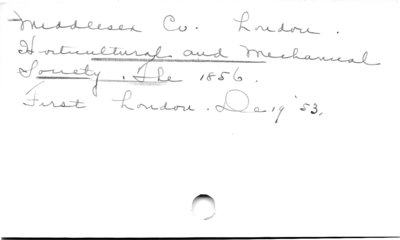 Middlesex Co. London.
Horticultural and Mechanical
Society. The 1856.
First London. De 19 '53.